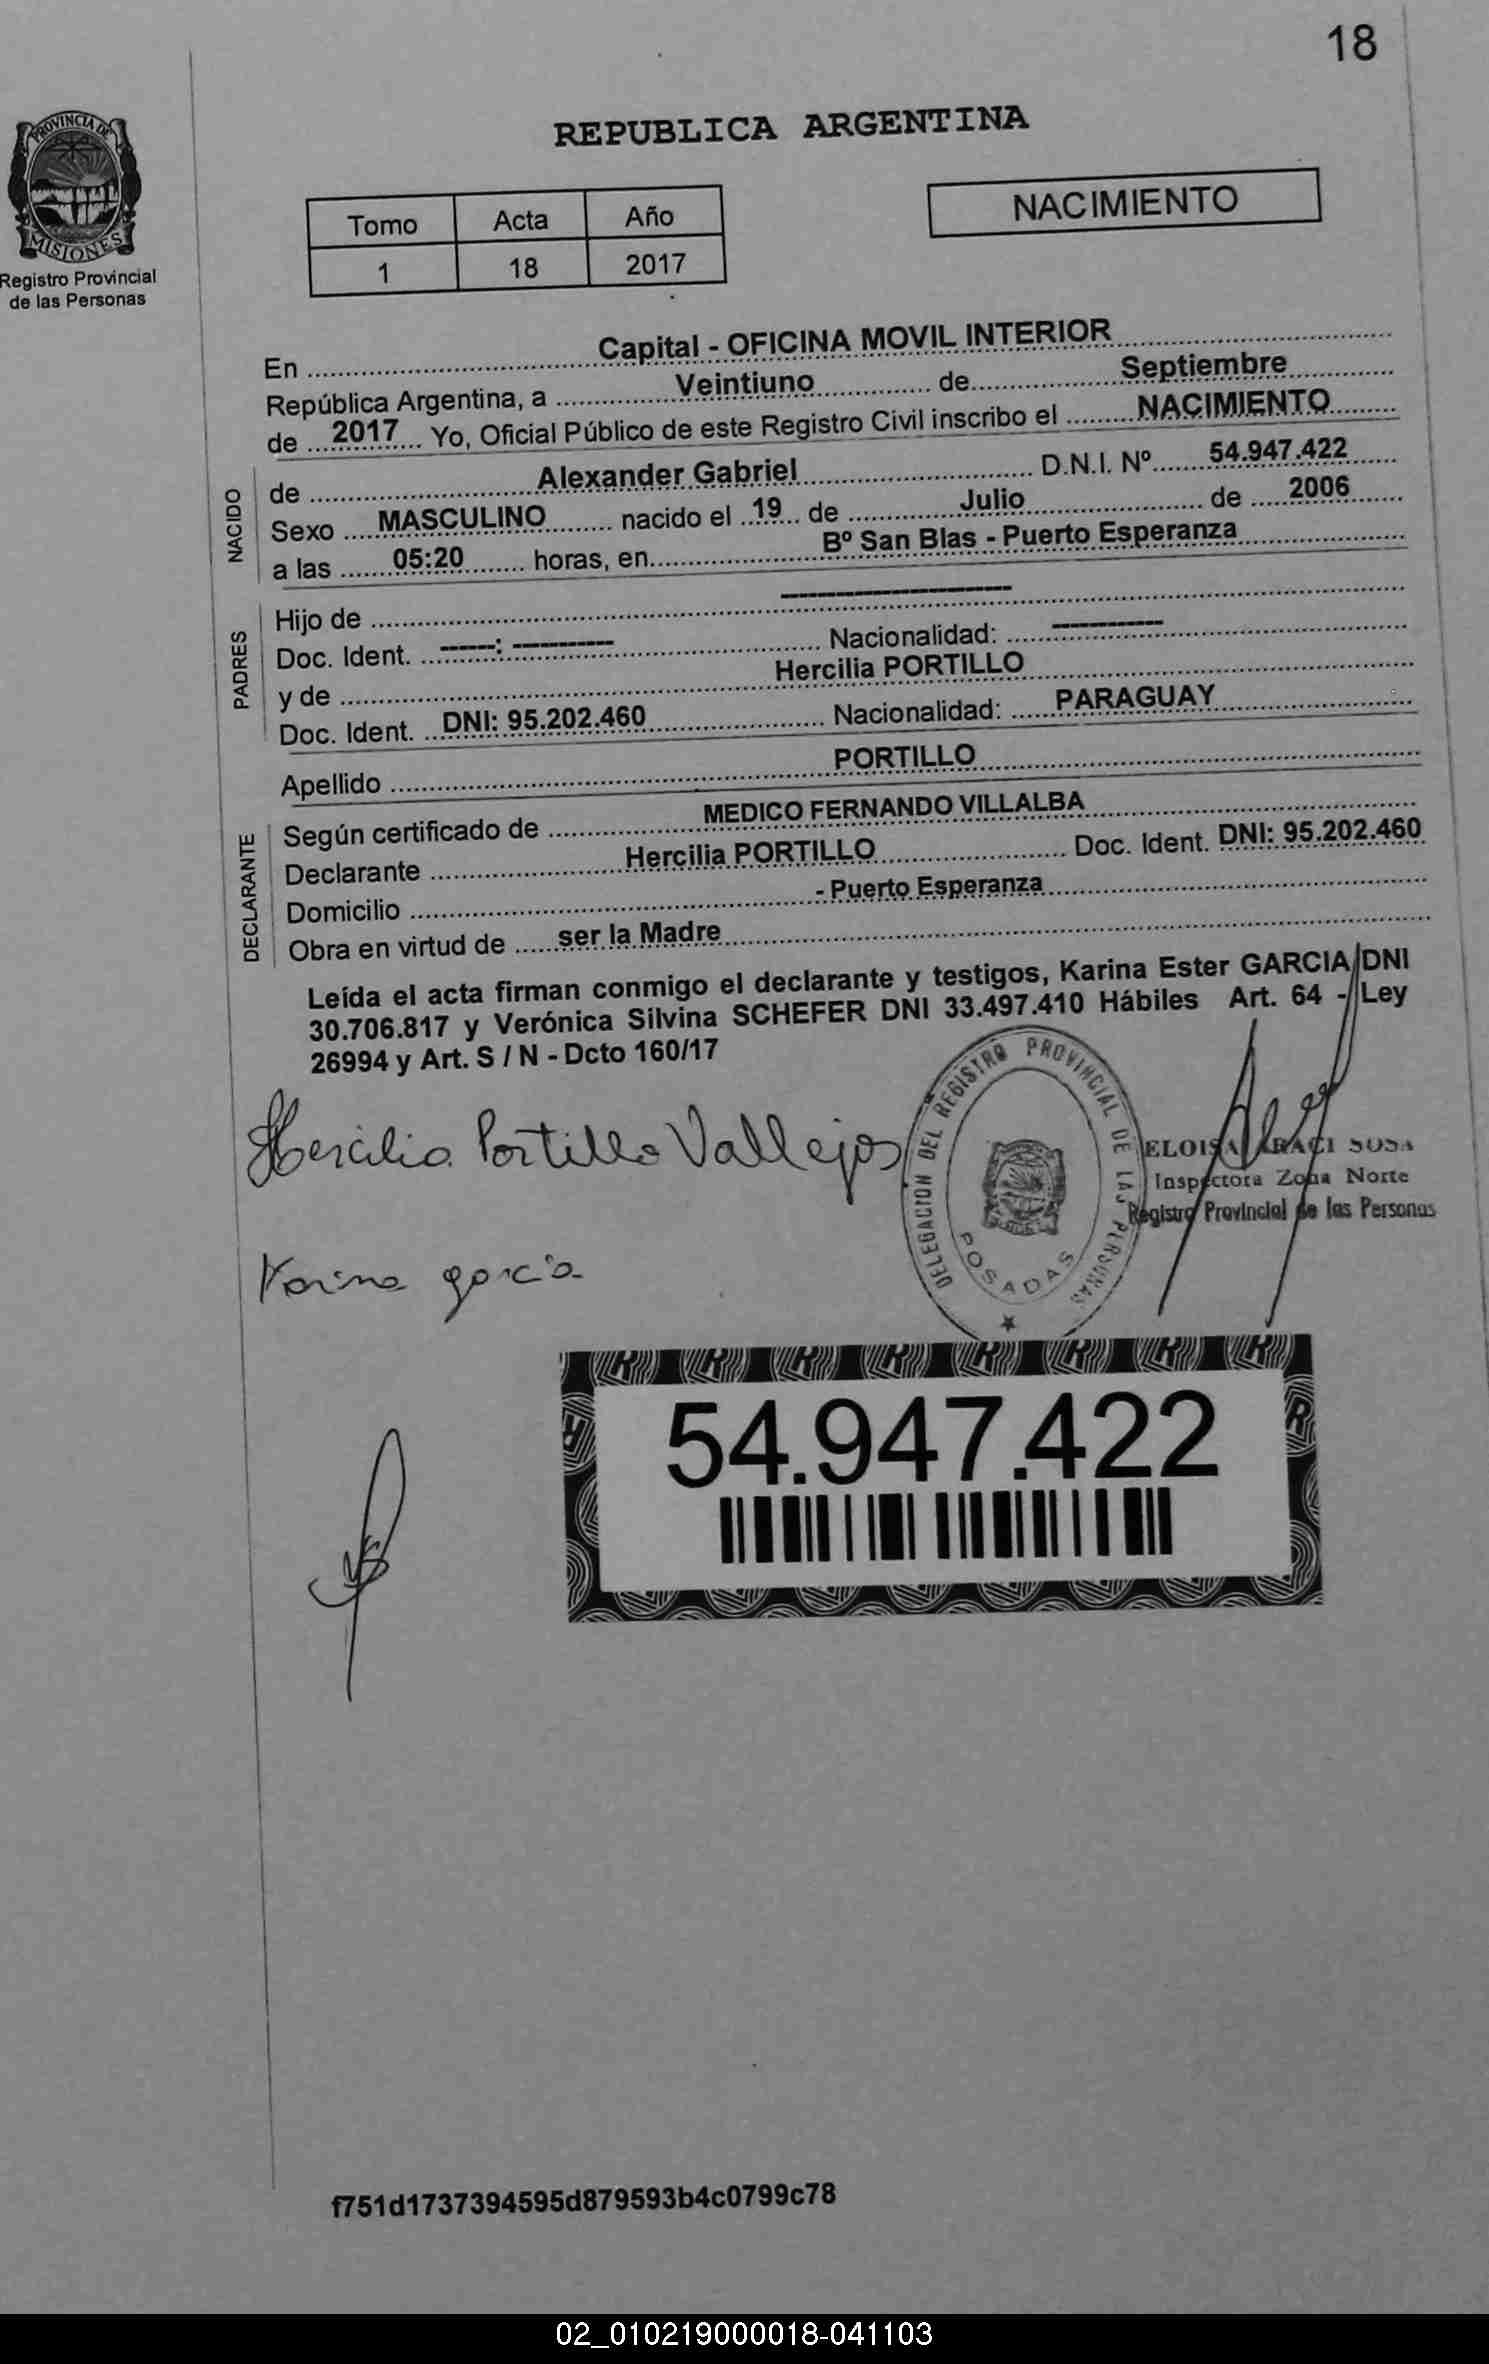 18
PROVINCIA DE
MISIONES
Registro Provincial
de las Personas
REPUBLICA ARGENTINA
Tomo Acta Año
1 18 2017
NACIMIENTO
En Capital - OFICINA MOVIL INTERIOR
República Argentina, a Veintiuno de Septiembre
de 2017 Yo, Oficial Público de este Registro Civil inscribo el NACIMIENTO
NACIDO
de Alexander Gabriel D.N.I. Nº 54.947.422
Sexo MASCULINO nacido el 19 de Julio de 2006
a las 05:20 horas, en Bº San Blas - Puerto Esperanza
PADRES
Hijo de --------------------
Doc. Ident. ------: ---------- Nacionalidad: -----------
y de Hercilia PORTILLO
Doc. Ident. DNI: 95.202.460 Nacionalidad: PARAGUAY
Apellido PORTILLO
DECLARANTE
Según certificado de MEDICO FERNANDO VILLALBA
Declarante Hercilia PORTILLO Doc. Ident. DNI: 95.202.460
Domicilio - Puerto Esperanza
Obra en virtud de ser la Madre
Leída el acta firman conmigo el declarante y testigos, Karina Ester GARCIA DNI
30.706.817 y Verónica Silvina SCHEFER DNI 33.497.410 Hábiles Art. 64 - Ley
26994 y Art. S / N - Dcto 160/17
Hercilia Portillo Vallejos
DELEGACION DEL REGISTRO PROVINCIAL DE LAS PERSONAS
POSADAS
ELOISA ARACI SOSA
Inspectora Zona Norte
Registro Provincial de las Personas
Karina garcia
54.947.422
f751d1737394595d879593b4c0799c78
02_010219000018-041103